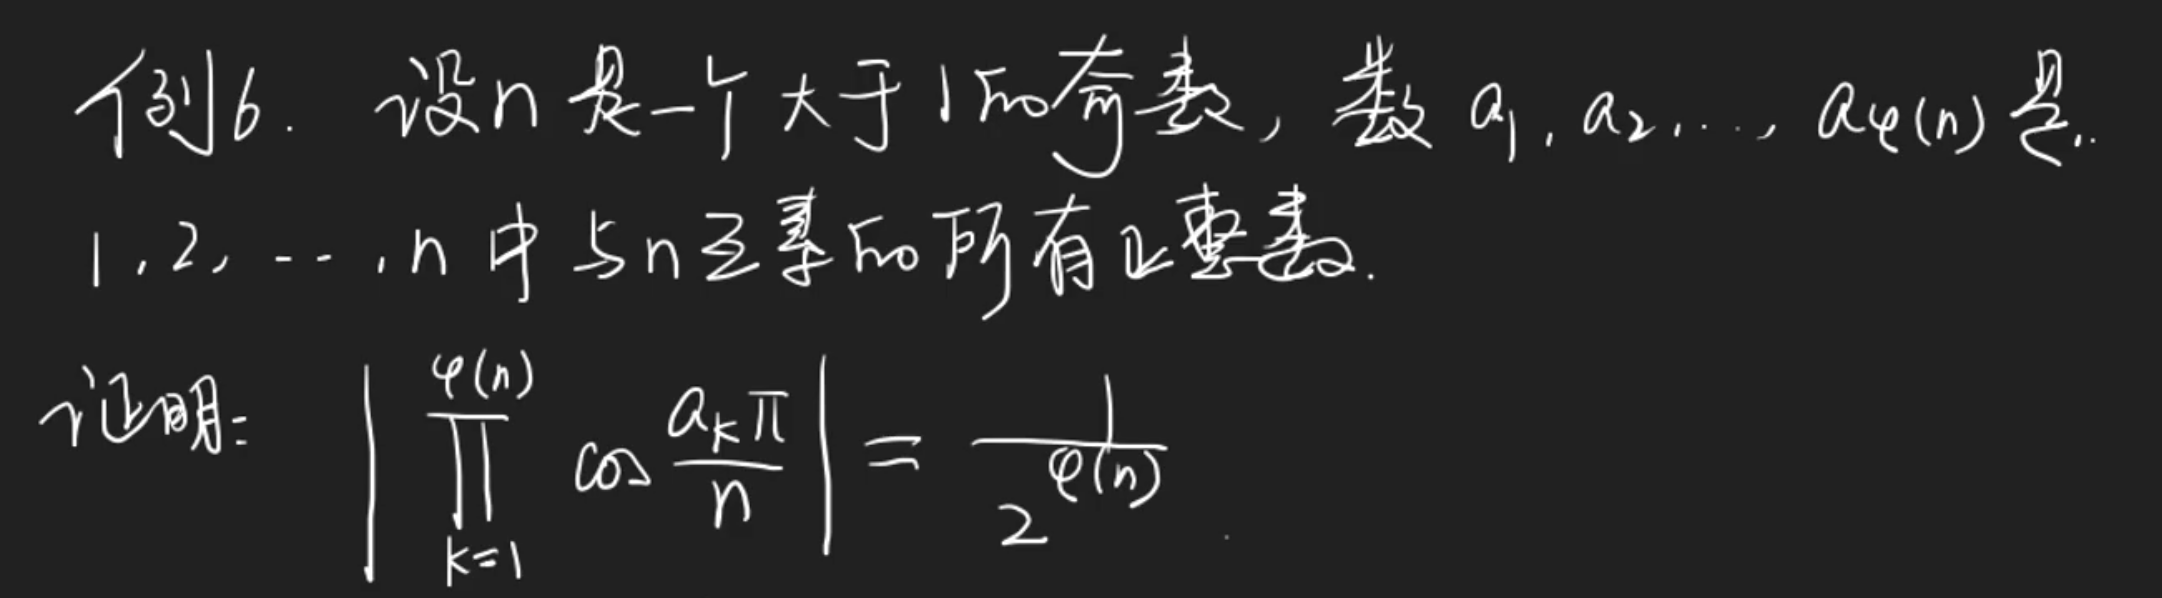 例6. 设n是一个大于1的奇数, 数 a₁, a₂, ..., aφ(n) 是
1, 2, ..., n 中与n互素的所有正整数.
证明: |∏_{k=1}^{φ(n)} cos(a_kπ/n)| = 1/2^{φ(n)}.